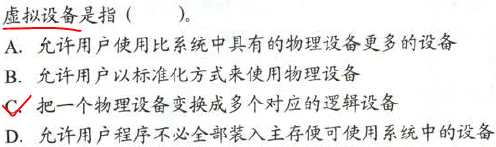 虚拟设备是指（　　）。
A. 允许用户使用比系统中具有的物理设备更多的设备
B. 允许用户以标准化方式来使用物理设备
C. 把一个物理设备变换成多个对应的逻辑设备
D. 允许用户程序不必全部装入主存便可使用系统中的设备